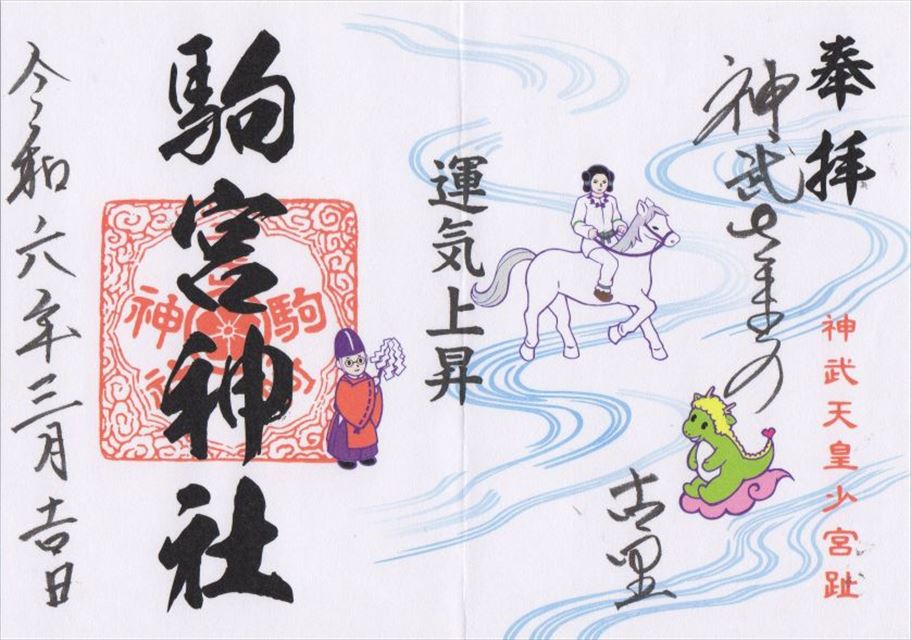 奉拝
神武天皇少宮趾
神武さまの
古里
運気上昇
駒宮神社
駒
神
令和六年三月吉日